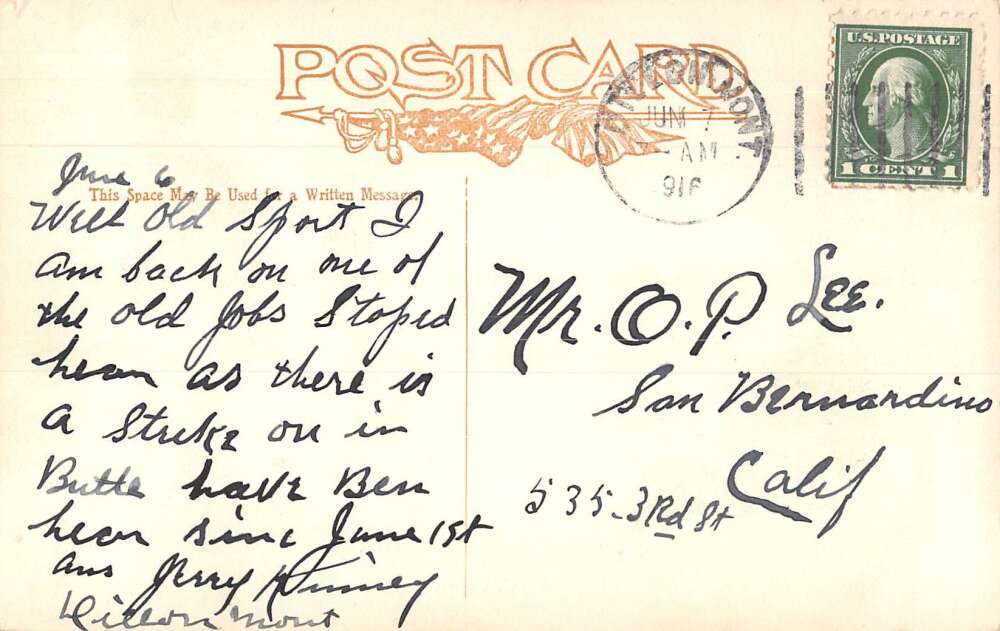 POST CARD
DILLON, MONT.
JUN 7
AM
1916
U.S. POSTAGE
1 CENT 1
June 6
This Space May Be Used for a Written Message.
Well Old Sport I
am back on one of
the old Jobs Stoped
hear as there is
a Strike on in
Butte have Ben
hear sinc June 1st
ans Jerry Kinney
Dillon Mont
Mr. O. P. Lee.
San Bernardino
Calif
535-3Rd St